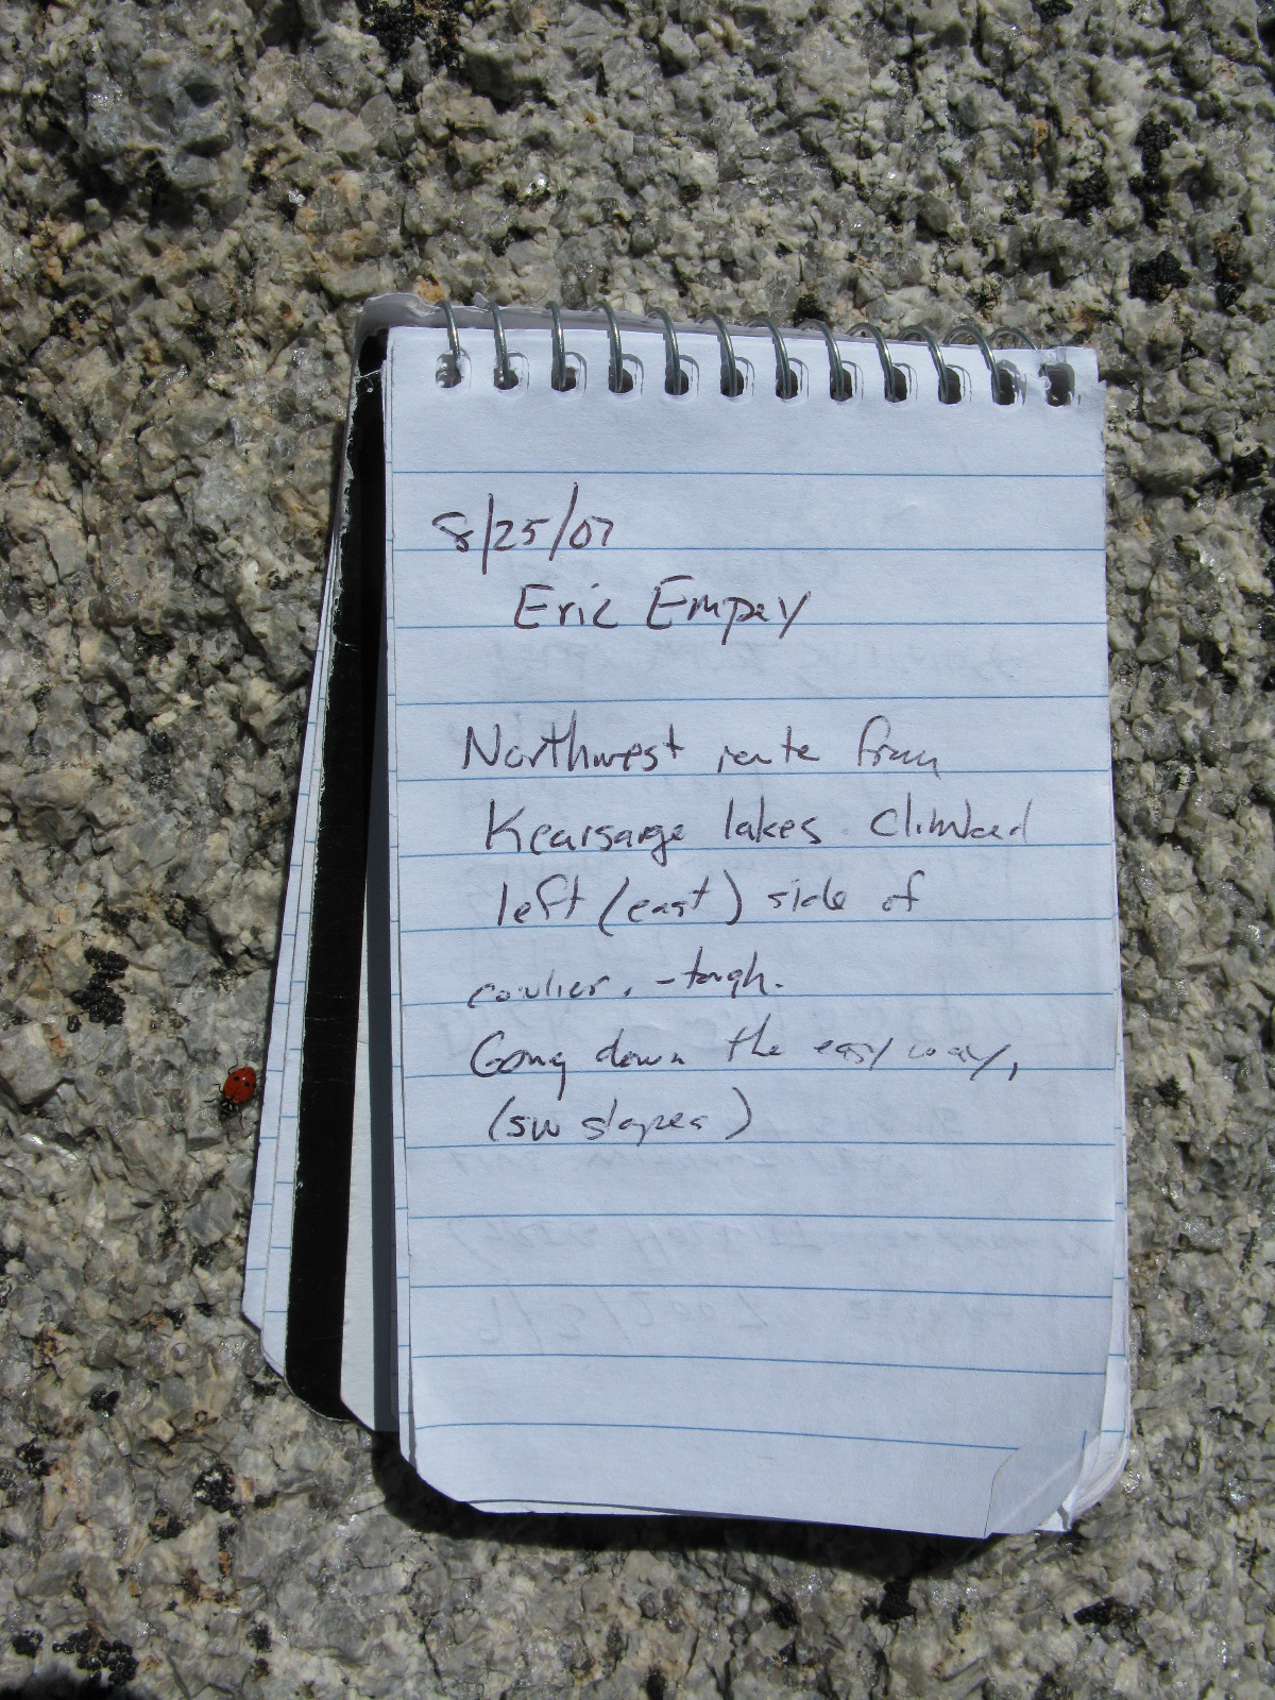 8/25/07
Eric Empey
Northwest route from
Kearsarge lakes. Climbed
left (east) side of
coulier. - tough.
Going down the easy way,
(SW slopes)